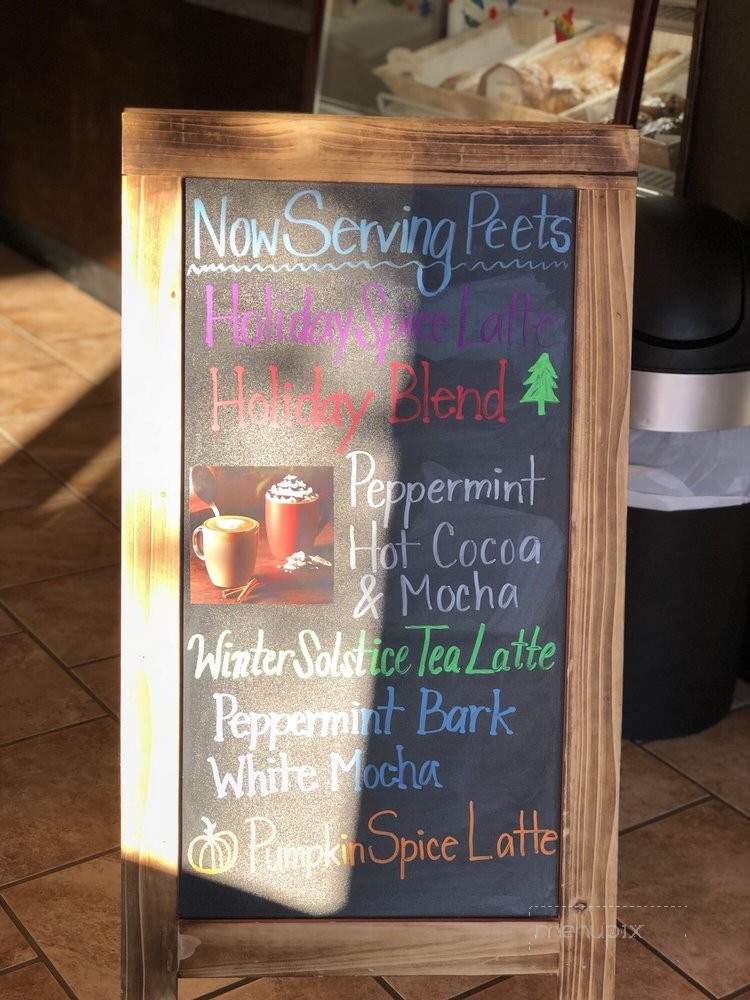 Now Serving Peets
Holiday Spice Latte
Holiday Blend
Peppermint
Hot Cocoa
& Mocha
Winter Solstice Tea Latte
Peppermint Bark
White Mocha
Pumpkin Spice Latte
menupix